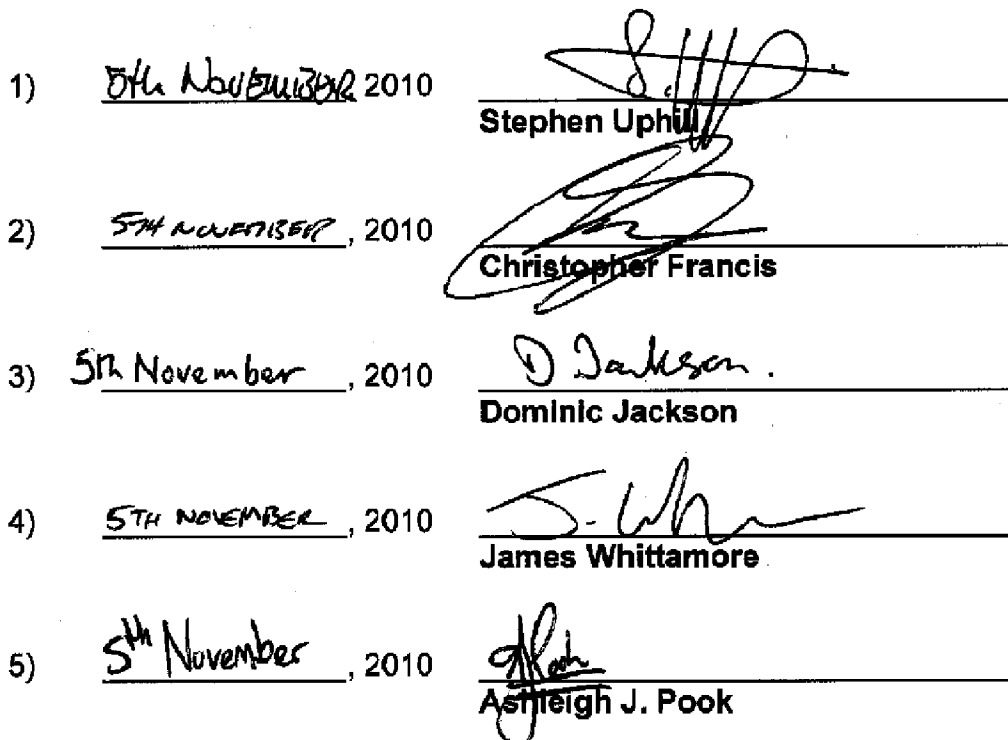 1) 5th NOVEMBER 2010
Stephen Uphill
2) 5TH NOVEMBER, 2010
Christopher Francis
3) 5th November, 2010 D Jackson.
Dominic Jackson
4) 5TH NOVEMBER, 2010
James Whittamore
5) 5th November, 2010 A Pook
Ashleigh J. Pook